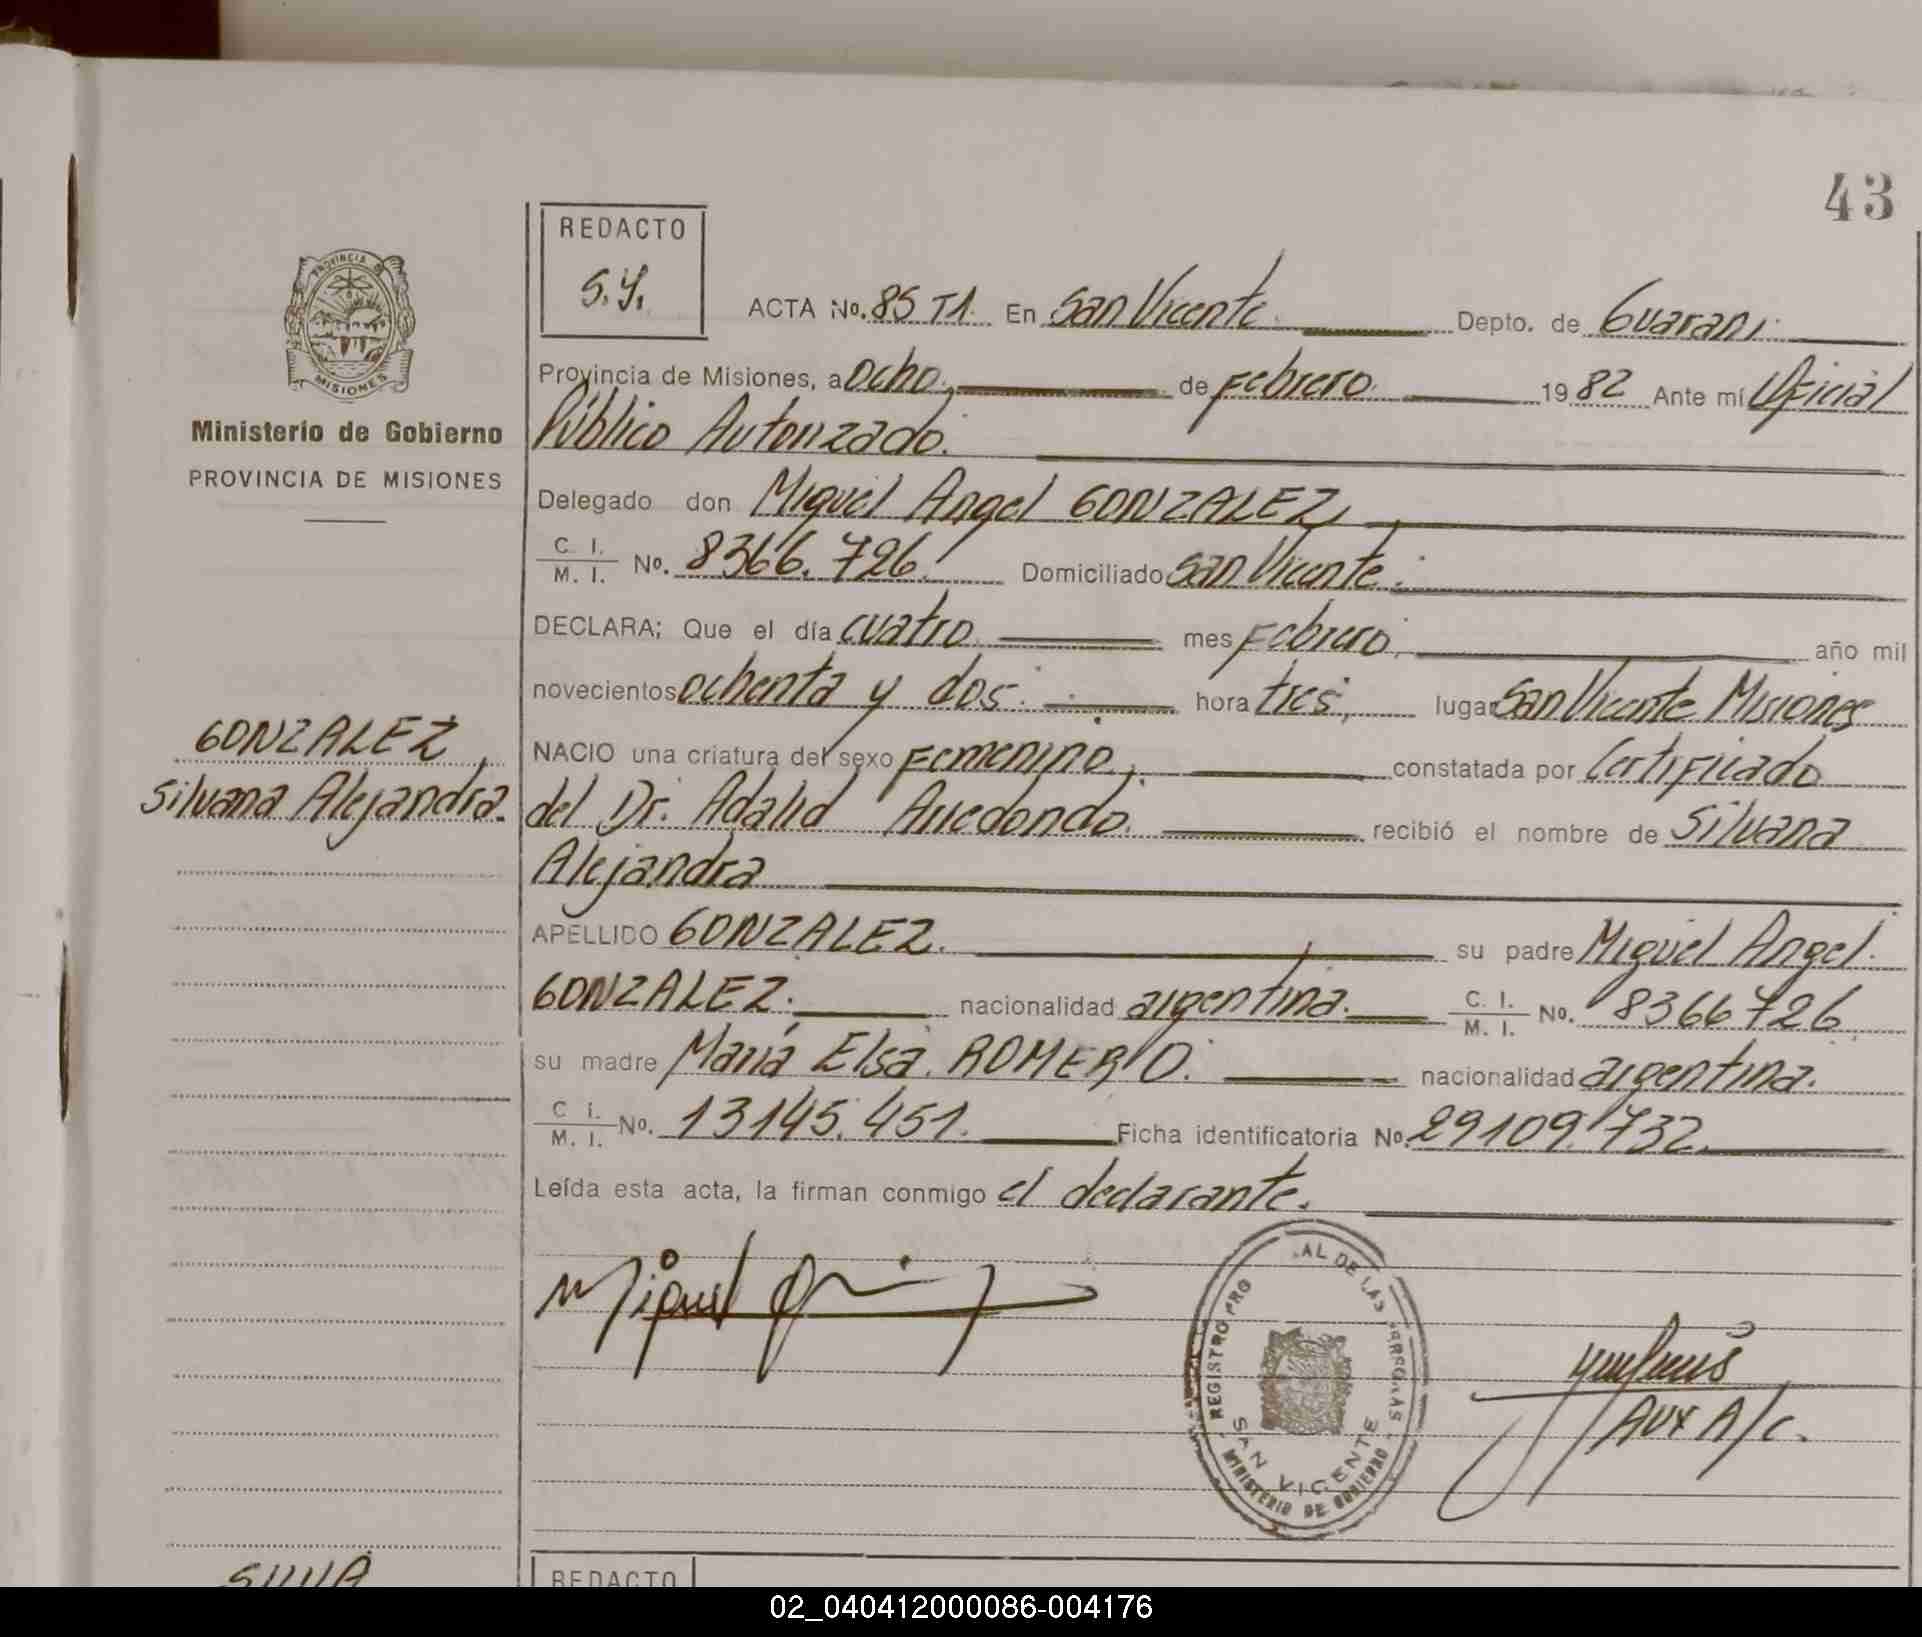 43
REDACTO
S.Y.
PROVINCIA DE
MISIONES
Ministerio de Gobierno
PROVINCIA DE MISIONES
ACTA No. 85 T1. En San Vicente. Depto. de Guaraní
Provincia de Misiones, a ocho. de Febrero. 1982 Ante mí Oficial
Público Autorizado.
Delegado don Miguel Angel GONZALEZ,
C. I. / M. I. No. 8366.726. Domiciliado San Vicente.
DECLARA; Que el día cuatro mes Febrero, año mil
novecientos ochenta y dos. hora tres, lugar San Vicente Misiones
GONZALEZ,
Silvana Alejandra.
NACIO una criatura del sexo Femenino, constatada por Certificado
del Dr. Adalid Arredondo. recibió el nombre de Silvana
Alejandra
APELLIDO GONZALEZ. su padre Miguel Angel.
GONZALEZ. nacionalidad argentina. C. I. / M. I. No. 8366726
su madre María Elsa. ROMERO. nacionalidad argentina.
C i. / M. I. No. 13145.451. Ficha identificatoria No. 29109.732.
Leída esta acta, la firman conmigo el declarante.
Miguel
REGISTRO PRO AL DE LAS
SAN VICENTE
MINISTERIO DE GOBIERNO
Aux A/C.
SILVA
REDACTO
02_040412000086-004176